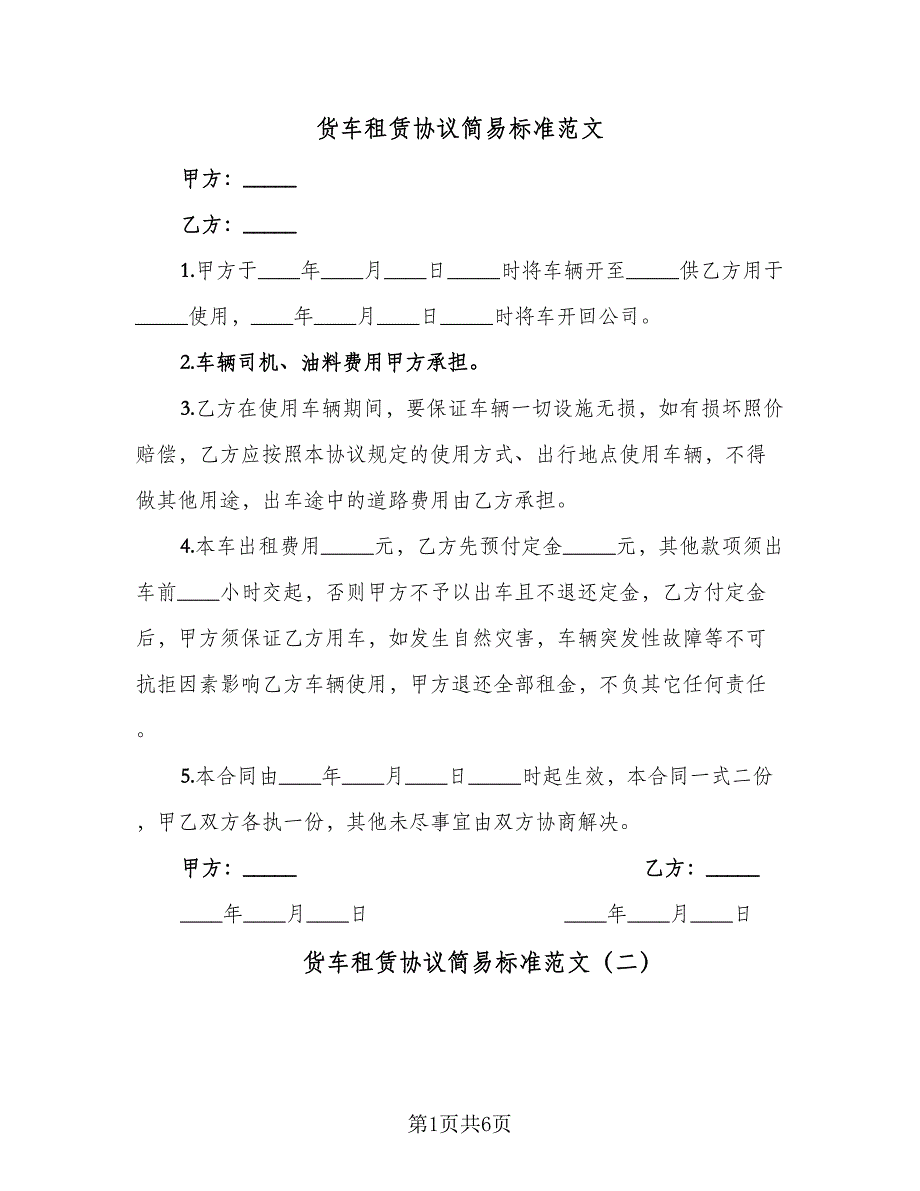 货车租赁协议简易标准范文
甲方：_____
乙方：_____
1.甲方于____年____月____日_____时将车辆开至_____供乙方用于
_____使用，____年____月____日_____时将车开回公司。
2.车辆司机、油料费用甲方承担。
3.乙方在使用车辆期间，要保证车辆一切设施无损，如有损坏照价
赔偿，乙方应按照本协议规定的使用方式、出行地点使用车辆，不得
做其他用途，出车途中的道路费用由乙方承担。
4.本车出租费用_____元，乙方先预付定金_____元，其他款项须出
车前____小时交起，否则甲方不予以出车且不退还定金，乙方付定金
后，甲方须保证乙方用车，如发生自然灾害，车辆突发性故障等不可
抗拒因素影响乙方车辆使用，甲方退还全部租金，不负其它任何责任
。
5.本合同由____年____月____日_____时起生效，本合同一式二份
，甲乙双方各执一份，其他未尽事宜由双方协商解决。
甲方：_____ 乙方：_____
____年____月____日 ____年____月____日
货车租赁协议简易标准范文（二）
第1页共6页